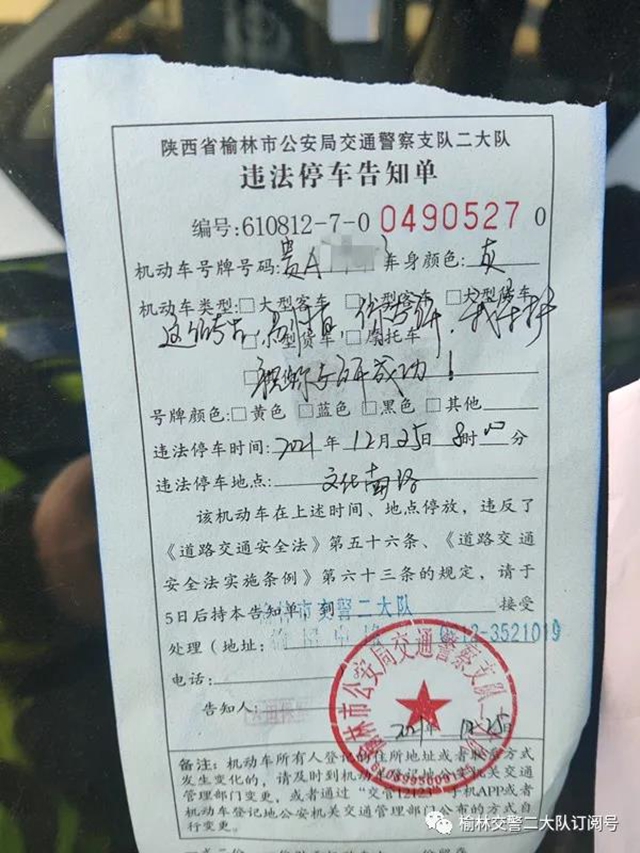 陕西省榆林市公安局交通警察支队二大队
违法停车告知单
编号:610812-7-0 0490527 0
机动车号牌号码:贵A 车身颜色:灰
机动车类型:□大型客车 □小型客车 □大型货车
□小型货车 □摩托车
祝你考研成功!
号牌颜色:□黄色 □蓝色 □黑色 □其他
违法停车时间:2021年12月25日8时00分
违法停车地点:文化南路
该机动车在上述时间、地点停放,违反了
《道路交通安全法》第五十六条、《道路交通
安全法实施条例》第六十三条的规定,请于
5日后持本告知单,到榆林市交警二大队接受
处理(地址: 0912-3521019
电话:
告知人:
2021年12月25日
榆林市公安局交通警察支队二大队
备注:机动车所有人登记的住所地址或者联系方式
发生变化的,请及时到机动车登记地公安机关交通
管理部门变更,或者通过“交管12123”手机APP或者
机动车登记地公安机关交通管理部门公布的方式自
行变更。
榆林交警二大队订阅号